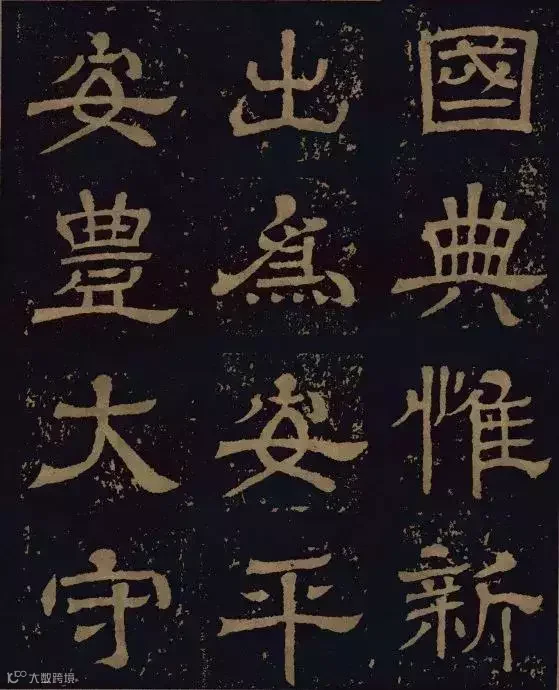 國典惟新
出爲安平
安豊大守
大数跨境